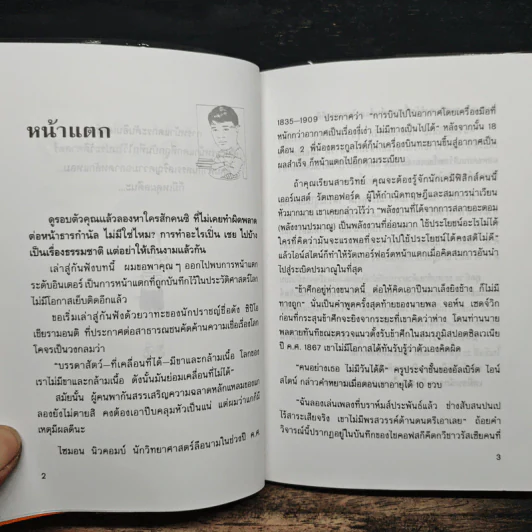 หน้าแตก
ดูรอบตัวคุณแล้วลองหาใครสักคนซิ ที่ไม่เคยทำผิดพลาด
ต่อหน้าธารกำนัล ไม่มีใช่ไหม? การทำอะไรเปิ่น เชย ไปบ้าง
เป็นเรื่องธรรมชาติ แต่อย่าให้เกินงามแล้วกัน
เล่าสู่กันฟังบทนี้ ผมขอพาคุณๆ ออกไปพบการหน้าแตก
ระดับอินเตอร์ เป็นการหน้าแตกที่ถูกบันทึกไว้ในประวัติศาสตร์โลก
ไม่มีโอกาสเย็บติดอีกแล้ว
ขอเริ่มเล่าสู่กันฟังด้วยวาทะของนักปราชญ์ชื่อดัง ซิปิโอ
เชียรามอนติ ที่ประกาศต่อสาธารณชนคัดค้านความเชื่อเรื่องโลก
โคจรเป็นวงกลมว่า
"บรรดาสัตว์–ที่เคลื่อนที่ได้–มีขาและกล้ามเนื้อ โลกของ
เราไม่มีขาและกล้ามเนื้อ ดังนั้นมันย่อมเคลื่อนที่ไม่ได้"
สมัยนั้น ผู้คนพากันสรรเสริญความฉลาดหลักแหลมของแก
ลองยังไม่ตายสิ คงต้องเอาปี๊บคลุมหัวเป็นแน่ แต่ผมว่าแกก็มี
เหตุมีผลดีนะ
ไซมอน นิวคอมบ์ นักวิทยาศาสตร์ลือนามในช่วงปี ค.ศ.
2
1835–1909 ประกาศว่า "การบินไปในอากาศโดยเครื่องมือที่
หนักกว่าอากาศเป็นเรื่องงี่เง่า ไม่มีทางเป็นไปได้" หลังจากนั้น 18
เดือน 2 พี่น้องตระกูลไรต์ก็นำเครื่องบินทะยานขึ้นสู่อากาศเป็น
ผลสำเร็จ ก็หน้าแตกไปอีกตามระเบียบ
ถ้าคุณเรียนสายวิทย์ คุณจะต้องรู้จักนักเคมีฟิสิกส์คนนี้
เออร์เนสต์ รัตเทอฟอร์ด ผู้ให้กำเนิดทฤษฎีและสมการน่าเวียน
หัวมากมาย เขาเคยกล่าวไว้ว่า "พลังงานที่ได้จากการสลายอะตอม
(พลังงานปรมาณู) เป็นพลังงานที่อ่อนมาก ใช้ประโยชน์อะไรไม่ได้
ใครที่คิดว่ามันจะแรงพอที่จะนำไปใช้ประโยชน์ได้คงสติไม่ดี"
แล้วไอน์สไตน์ก็ทำให้รัตเทอร์ฟอร์ดหน้าแตกเมื่อคิดสมการอันนำ
ไปสู่ระเบิดปรมาณูในที่สุด
"ข้าศึกอยู่ห่างขนาดนี้ ต่อให้คิดเอาปืนมาเล็งยิงช้าง ก็ไม่มี
ทางถูก" นั่นเป็นคำพูดครั้งสุดท้ายของนายพล จอห์น เซดจ์วิก
ก่อนที่กระสุนข้าศึกจะยิงจากระยะที่เขาคิดว่าห่าง โดนท่านนาย
พลตายทันทีขณะตรวจแนวตั้งรับข้าศึกในสมรภูมิสปอตซิลเวเนีย
ปี ค.ศ. 1867 เขาไม่มีโอกาสได้ทันรับรู้ว่าตัวเองคิดผิด
"คนอย่างเธอ ไม่มีวันได้ดี" ครูประจำชั้นของอัลเบิร์ต ไอน์
สไตน์ กล่าวคำหยามเมื่อตอนเขาอายุได้ 10 ขวบ
"ฉันลองเล่นเพลงที่บราห์มส์ประพันธ์แล้ว ช่างสับสนปนเป
ไร้สาระเสียจริง เขาไม่มีพรสวรรค์ด้านดนตรีเอาเลย" ถ้อยคำ
วิจารณ์นี้ปรากฏอยู่ในบันทึกของไชคอฟสกี้คีตกวีชาวรัสเซียคนที่
3